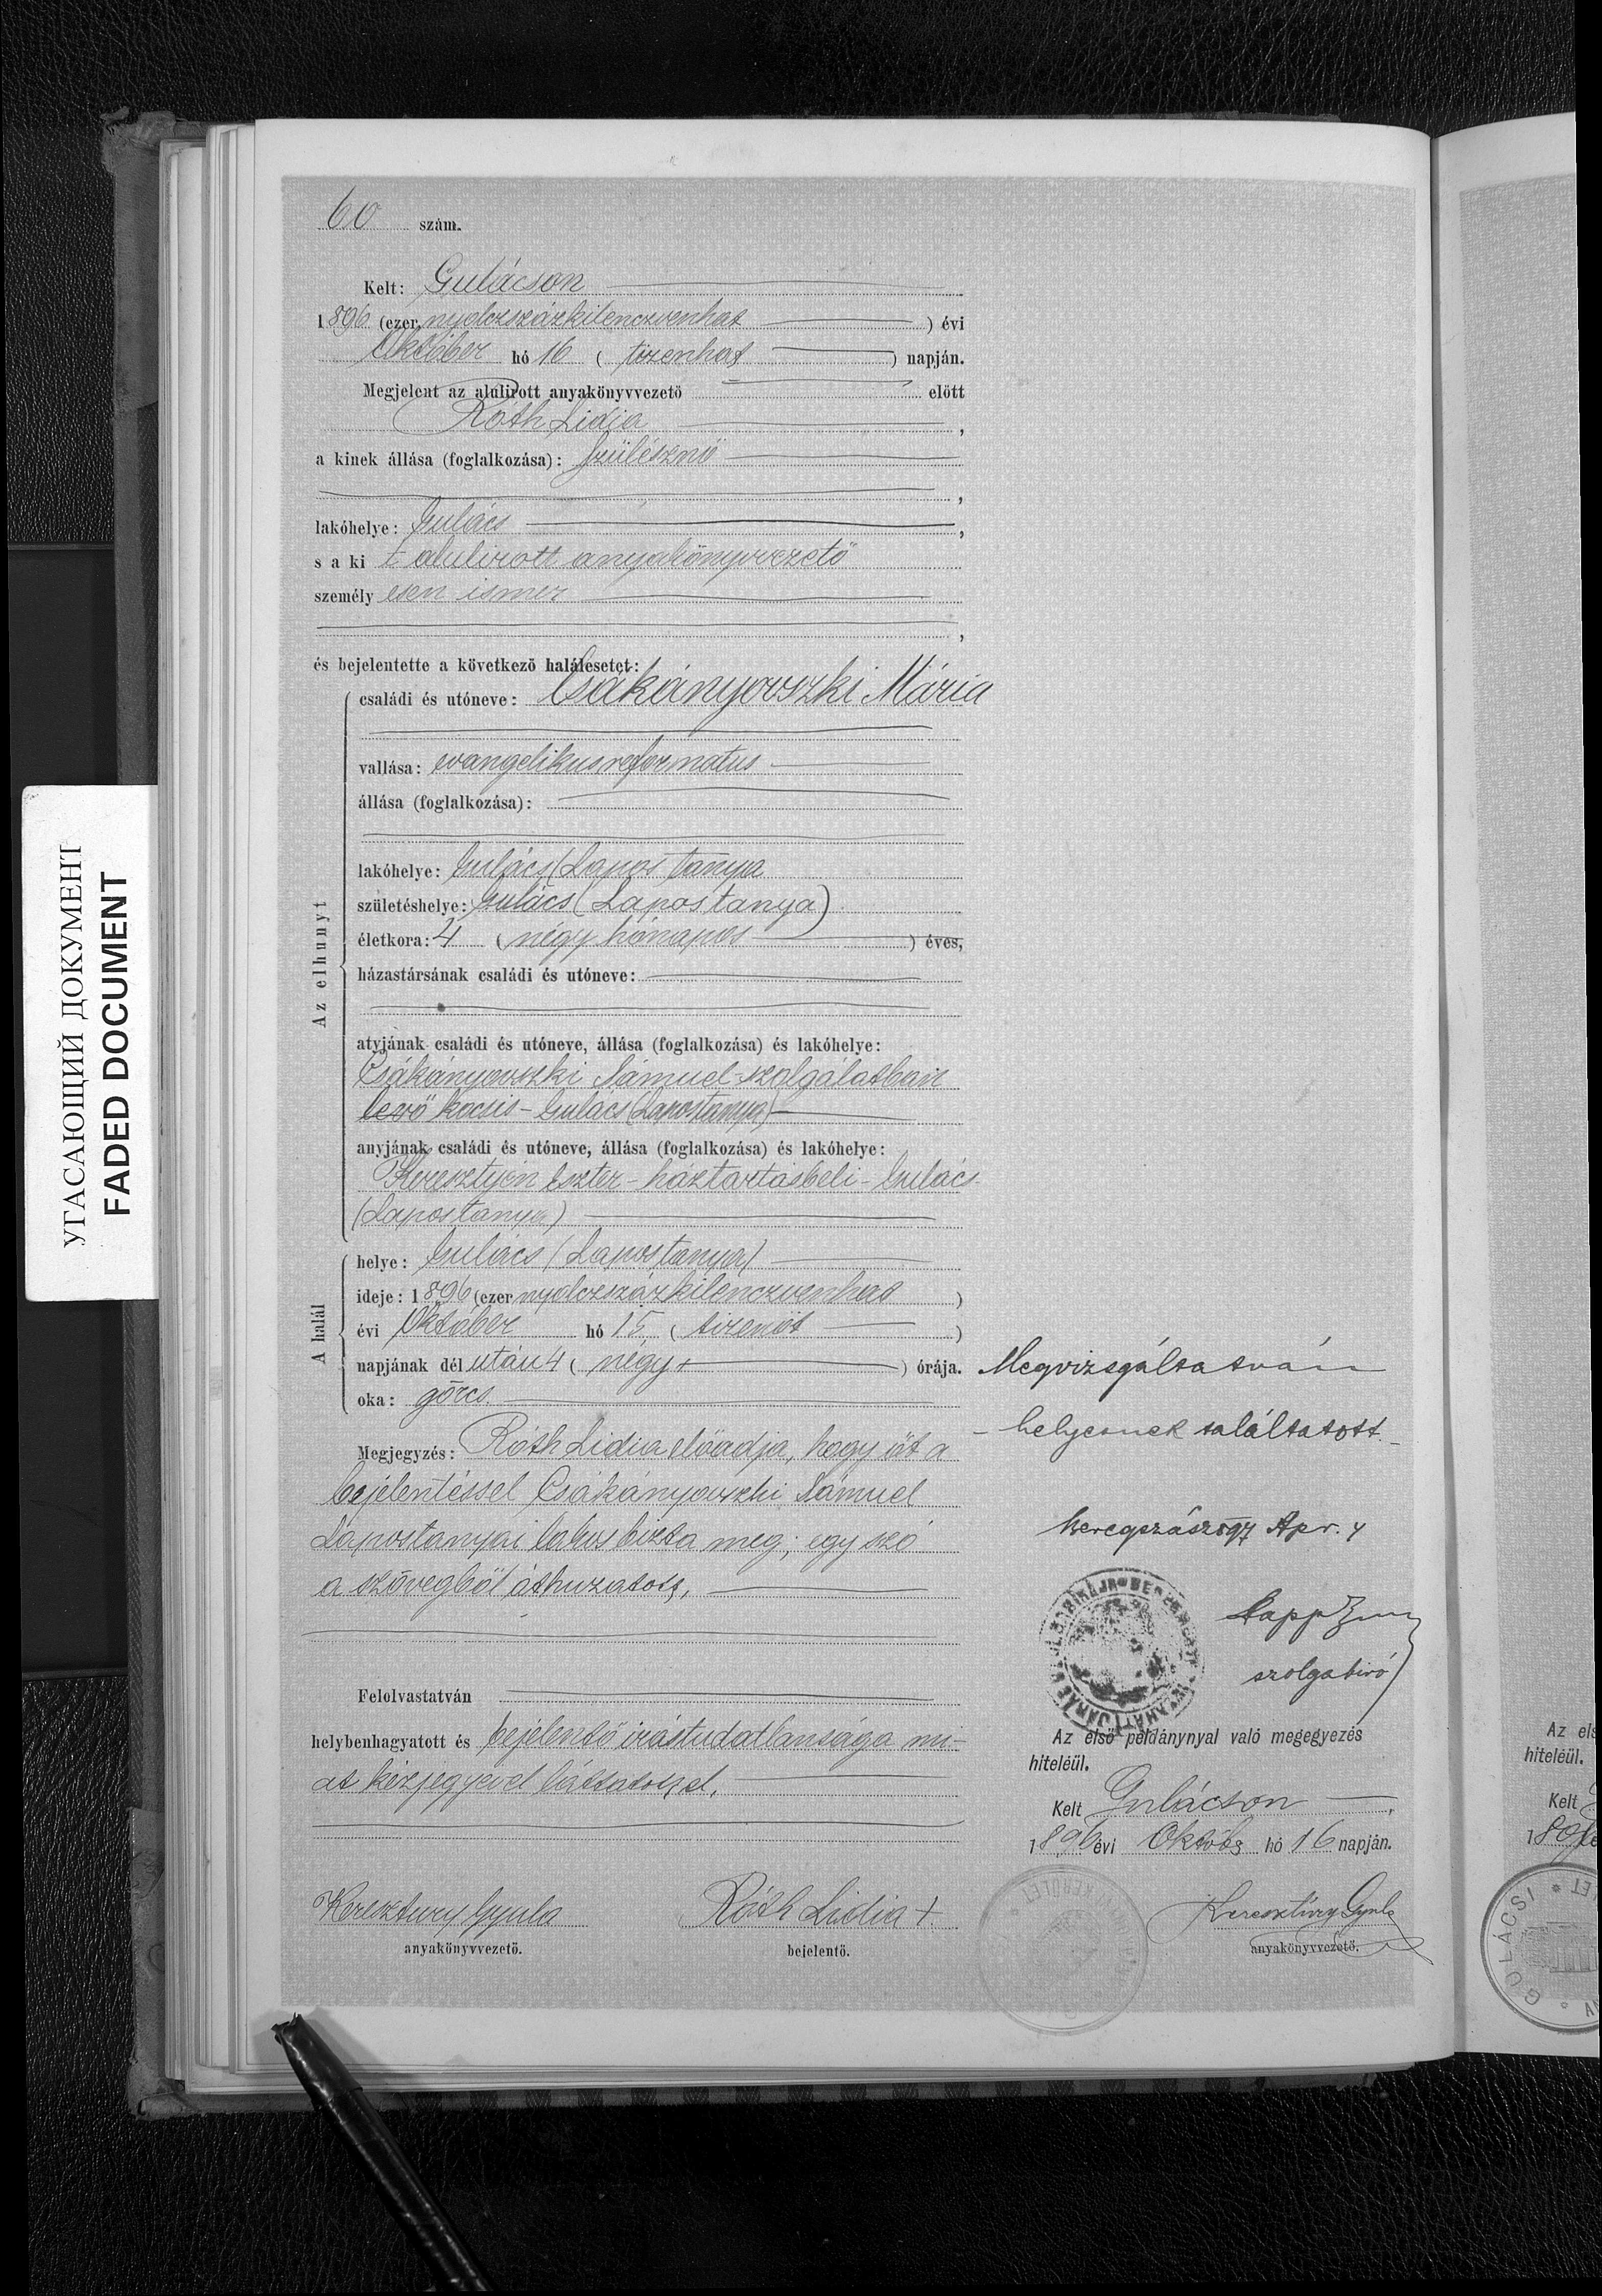 60 szám.
Kelt: Gulácson
1896 (ezer nyolczszázkilenczvenhat) évi
Október hó 16 (tizenhat) napján.
Megjelent az alulirott anyakönyvvezető előtt
Róth Lidia,
a kinek állása (foglalkozása): Szülésznő
,
lakóhelye: Gulács,
s a kit alulirott anyakönyvvezető
személyesen ismer
,
és bejelentette a következő halálesetet:
Az elhunyt
családi és utóneve: Csákányovszki Mária
vallása: evangelikus reformatus
állása (foglalkozása):
lakóhelye: Gulács (Lapos tanya
születéshelye: Gulács (Lapos tanya)
életkora: 4 (négy hónapos) éves,
házastársának családi és utóneve:
atyjának családi és utóneve, állása (foglalkozása) és lakóhelye:
Csákányovszki Sámuel - szolgálatban
levő kocsis - Gulács (Lapostanya)
anyjának családi és utóneve, állása (foglalkozása) és lakóhelye:
Keresztyén Eszter - háztartásbeli - Gulács
(Lapos tanya)
A halál
helye: Gulács (Lapos tanya)
ideje: 1896 (ezer nyolczszázkilenczvenhat)
évi Október hó 15 (tizenöt)
napjának dél után 4 (négy) órája.
oka: görcs.
Megjegyzés: Róth Lidia előadja, hogy őt a
bejelentéssel Csákányovszki Sámuel
Lapostanyai lakos bizta meg; egy szó
a szövegből áthuzatott,
Felolvastatván
helybenhagyatott és bejelentő irástudatlansága mi-
at kézjegyével láttatott el.
Keresztury Gyula
anyakönyvvezető.
Róth Lidia +
bejelentő.
Megvizsgáltatván
- helyesnek találtatott -
Beregszász 897 Apr. 4
szolgabiró
Az első példánynyal való megegyezés
hiteléül.
Kelt Gulácson,
1896 évi Októb hó 16 napján.
Keresztúry Gyula
anyakönyvvezető.
Az els
hiteléül.
Kelt
189
GULÁCSI
УГАСАЮЩИЙ ДОКУМЕНТ
FADED DOCUMENT